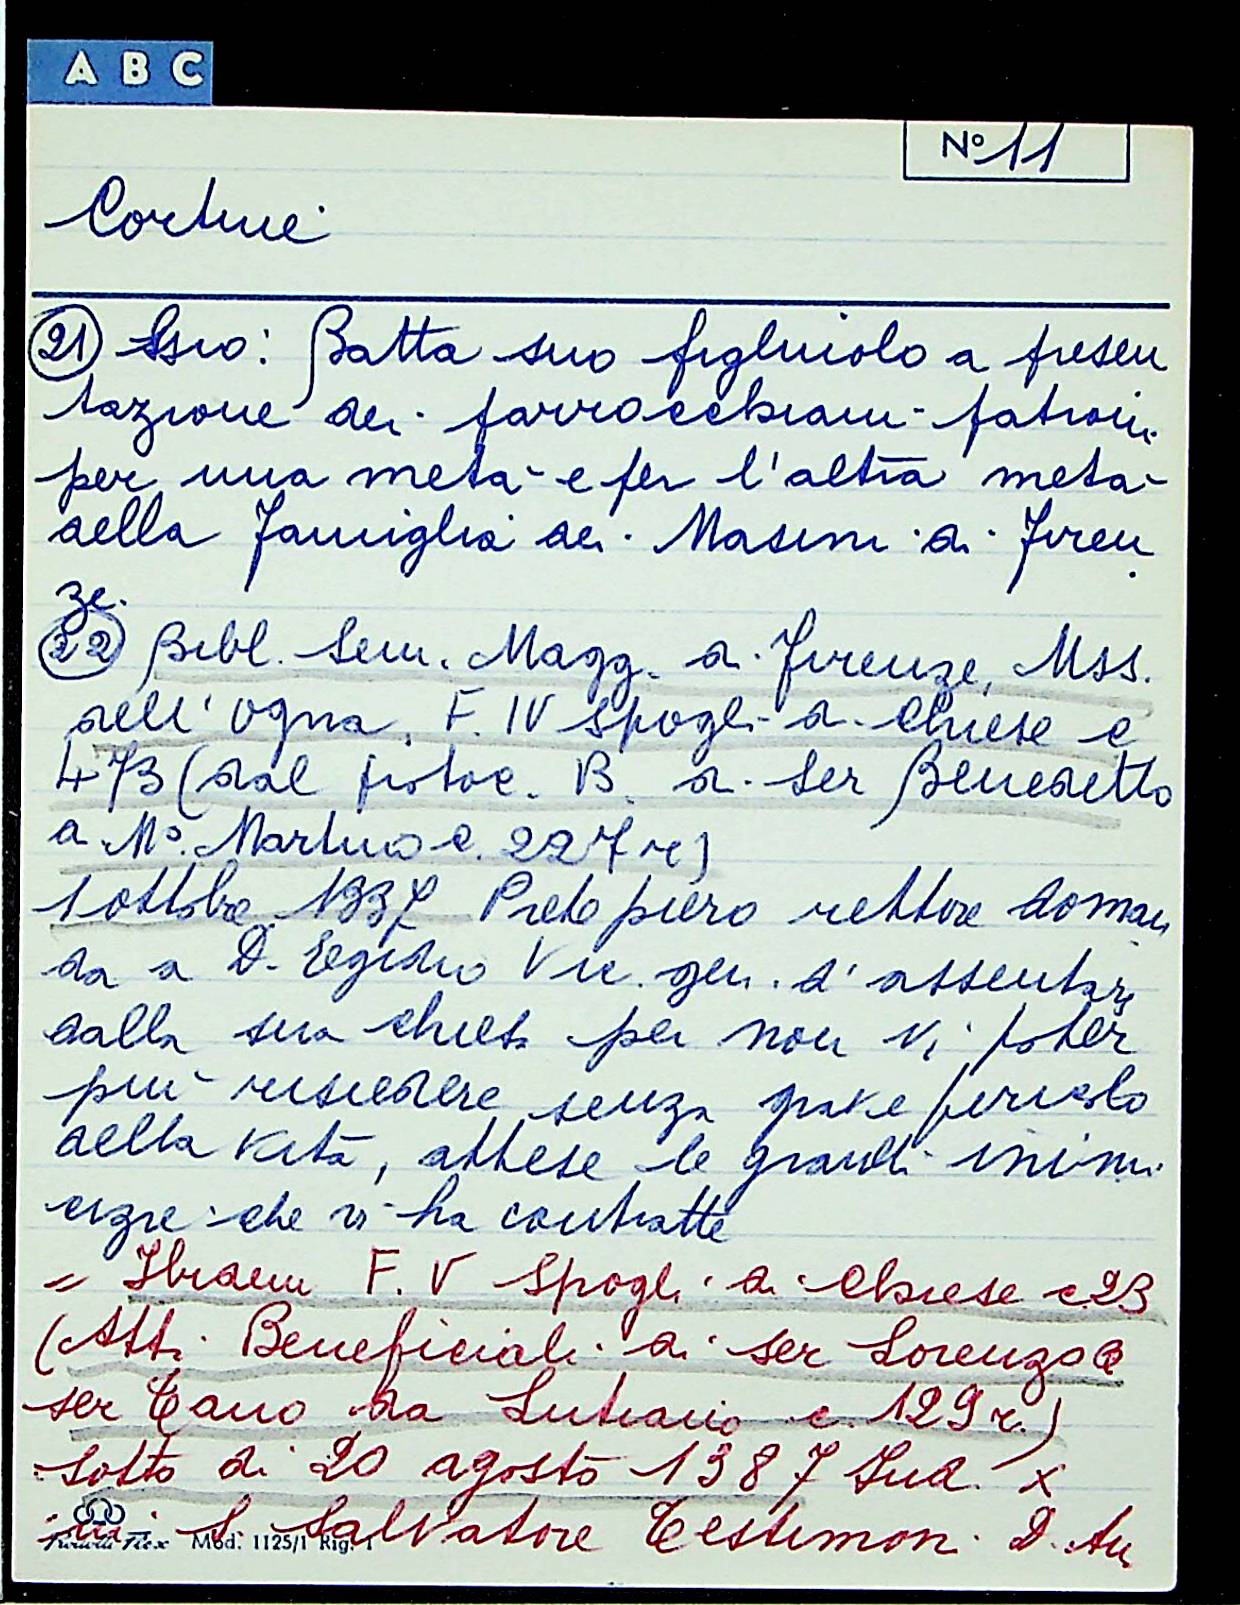 A B C
N° 11
Cortine
21 Ssio: Batta suo figliuolo a presen
tazione dei parrocchiani patroni
per una metà e per l'altra metà
della famiglia dei Masini di Firen
ze.
22 Bibl. Sem. Magg. di Firenze, Mss.
dell'Ogna, F. IV Spogli di Chiese c
473 (dal protoc. B. di Ser Benedetto
di M°. Martino c. 227 r)
1 ottobre 1337 Prete piero rettore doman
da a D. Egidio Vic. gen. d'assentarsi
dalla sua chiesa per non vi poter
più risiedere senza grave pericolo
della vita, attese le grandi inimi
cizie che vi ha contratte
= Ibidem F. V Spogli di Chiese c. 23
(Atti Beneficiali di ser Lorenzo
ser Tano da Lutiano c. 129 r.)
sotto di 20 agosto 1387 Ind. X
S. Salvatore Testimon. D. An
Mod. 1125/1 Rig. 1